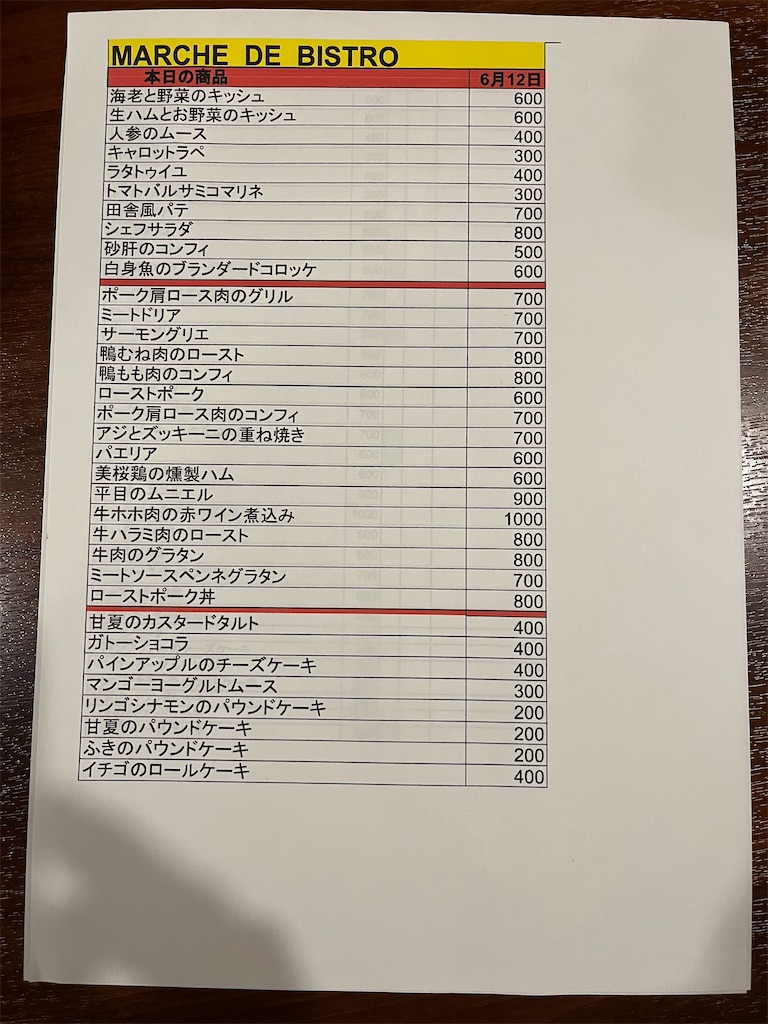 MARCHE DE BISTRO
本日の商品 6月12日
海老と野菜のキッシュ 600
生ハムとお野菜のキッシュ 600
人参のムース 400
キャロットラペ 300
ラタトゥイユ 400
トマトバルサミコマリネ 300
田舎風パテ 700
シェフサラダ 800
砂肝のコンフィ 500
白身魚のブランダードコロッケ 600
ポーク肩ロース肉のグリル 700
ミートドリア 700
サーモングリエ 700
鴨むね肉のロースト 800
鴨もも肉のコンフィ 800
ローストポーク 600
ポーク肩ロース肉のコンフィ 700
アジとズッキーニの重ね焼き 700
パエリア 600
美桜鶏の燻製ハム 600
平目のムニエル 900
牛ホホ肉の赤ワイン煮込み 1000
牛ハラミ肉のロースト 800
牛肉のグラタン 800
ミートソースペンネグラタン 700
ローストポーク丼 800
甘夏のカスタードタルト 400
ガトーショコラ 400
パインアップルのチーズケーキ 400
マンゴーヨーグルトムース 300
リンゴシナモンのパウンドケーキ 200
甘夏のパウンドケーキ 200
ふきのパウンドケーキ 200
イチゴのロールケーキ 400